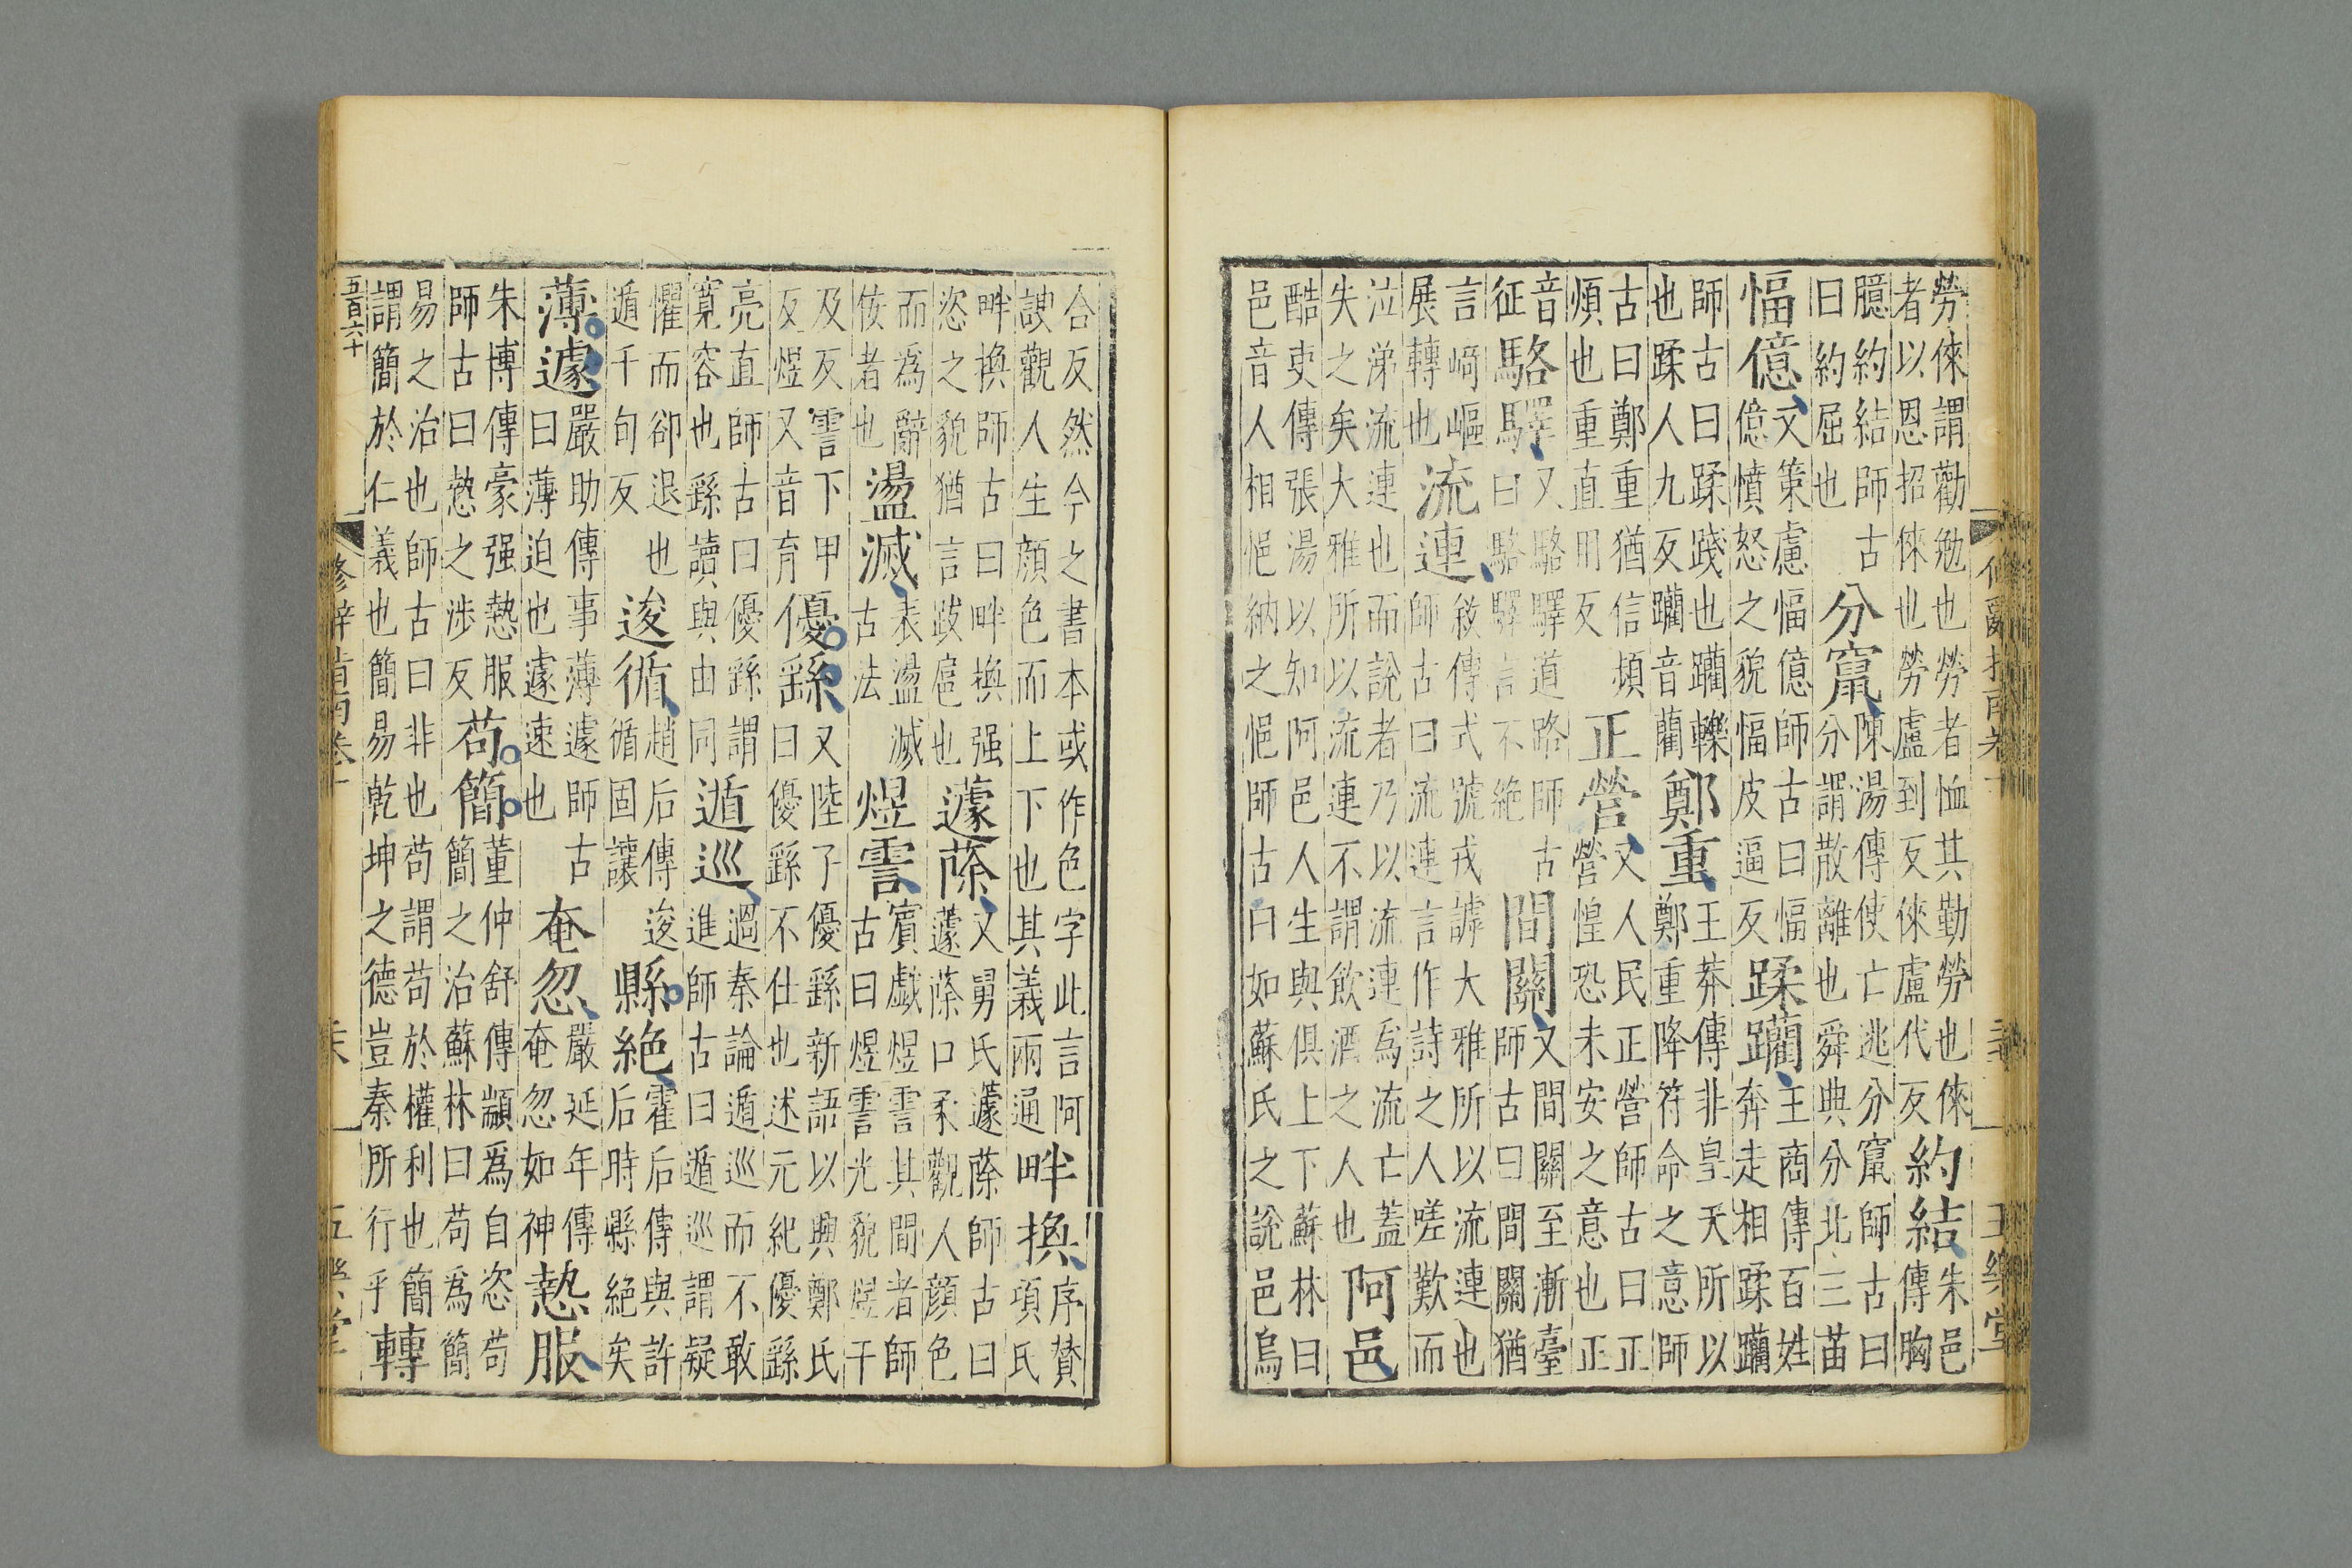 勞倈謂勸勉也勞者恤其勤勞也倈
者以恩招倈也勞盧到反倈盧代反
約結
朱邑
傳胸
臆約結師古
曰約屈也
分竄
陳湯傳使亡逃分竄師古曰
分謂散離也舜典分北三苗
愊億
又策慮愊億師古曰愊
億憤怒之貌愊皮逼反
蹂躪
王商傳百姓
奔走相蹂躪
師古曰蹂踐也躪轢
也蹂人九反躪音藺
鄭重
王莽傳非皇天所以
鄭重降符命之意師
古曰鄭重猶信頻
煩也重直用反
正營
又人民正營師古曰正
營惶恐未安之意也正
音
征
駱驛
又駱驛道路師古
曰駱驛言不絶
間關
又間關至漸臺
師古曰間關猶
言崎嶇
展轉也
流連
敘傳式號戎謼大雅所以流連也
師古曰流連言作詩之人嗟歎而
泣涕流連也而說者乃以流連爲流亡蓋
失之矣大雅所以流連不謂飲酒之人也
阿邑
酷吏傳張湯以知阿邑人生與俱上下蘇林曰
邑音人相悒納之悒師古曰如蘇氏之說邑烏
合反然今之書本或作色字此言阿
諛觀人生顔色而上下也其義兩通
畔換
序賛
項氏
畔換師古曰畔換强
恣之貌猶言跋扈也
蘧蒢
又舅氏蘧蒢師古曰
蘧蒢口柔觀人顔色
而爲辭
佞者也
盪滅
表盪滅
古法
煜霅
賓戲煜霅其間者師
古曰煜霅光貌煜于
及反霅下甲
反煜又音育
優繇
又陸子優繇新語以興鄭氏
曰優繇不仕也述元紀優繇
亮直師古曰優繇謂
寛容也繇讀與由同
遁巡
過秦論遁巡而不敢
進師古曰遁巡謂疑
懼而卻退也
遁千旬反
逡循
趙后傳逡
循固讓
縣絶
霍后傳與許
后時縣絶矣
薄遽
嚴助傳事薄遽師古
曰薄迫也遽速也
奄忽
嚴延年傳
奄忽如神
慹服
朱博傳豪强慹服
師古曰慹之涉反
苟簡
董仲舒傳顓爲自恣苟
簡之治蘇林曰苟爲簡
易之治也師古曰非也苟謂苟於權利也簡
謂簡於仁義也簡易乾坤之德豈秦所行乎
轉
五百六十